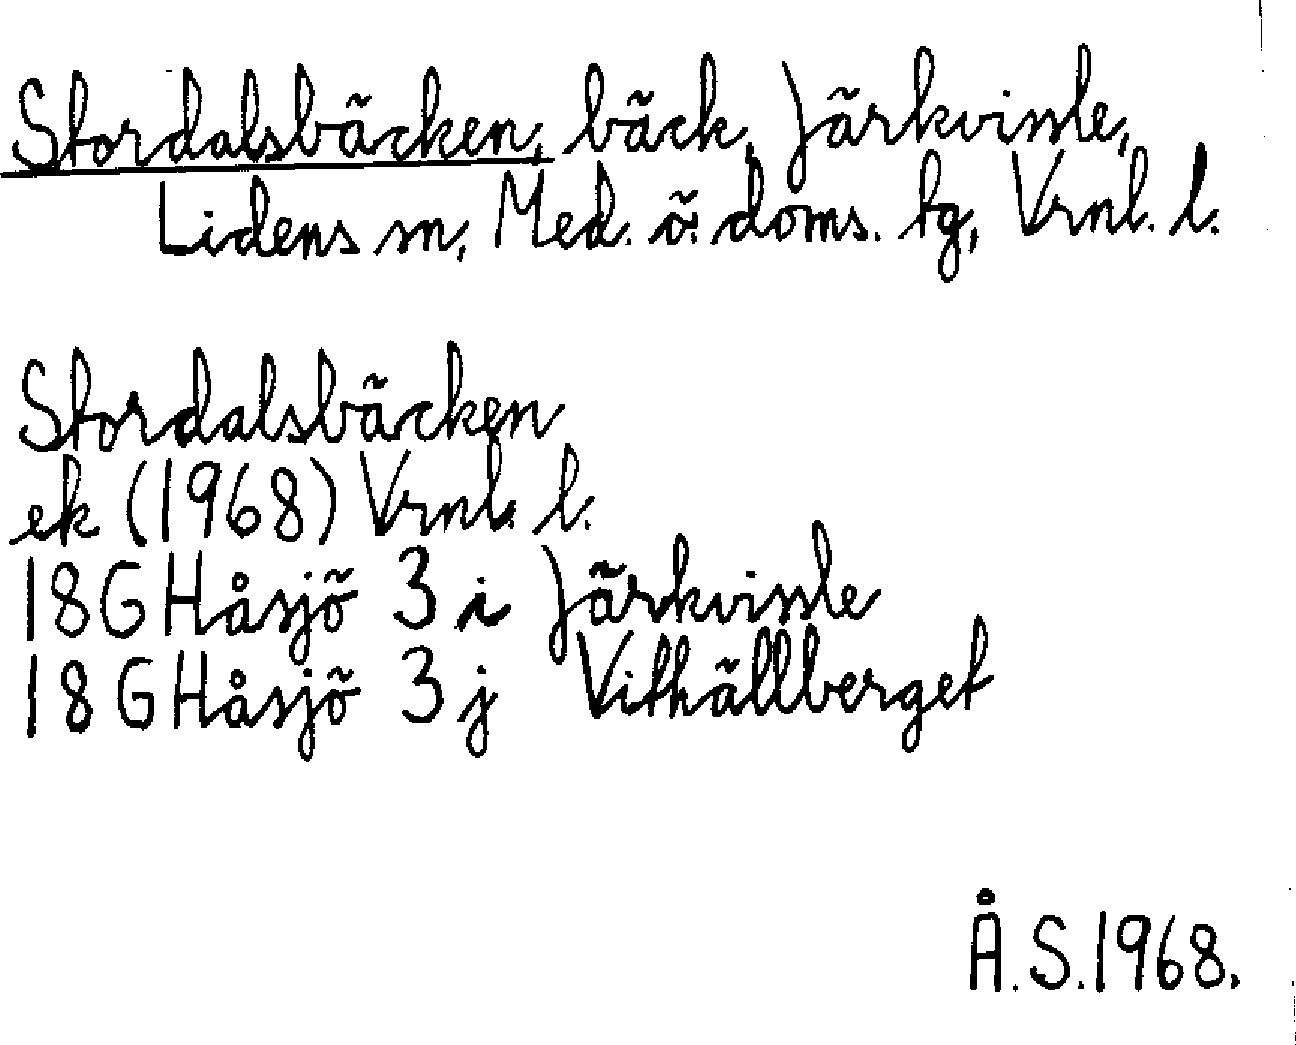 Stordalsbäcken, bäck, Järkvissle,
Lidens sn, Med. ö. doms. tg, Vrnl. l.
Stordalsbäcken
ek (1968) Vrnl. l.
18G Håsjö 3 i Järkvissle
18G Håsjö 3 j Vithällberget
Å.S.1968.